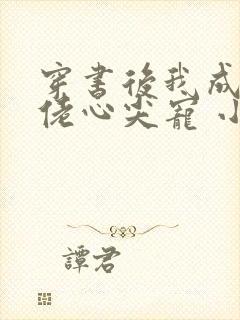 穿書後我成
佬心尖寵 小
譚君